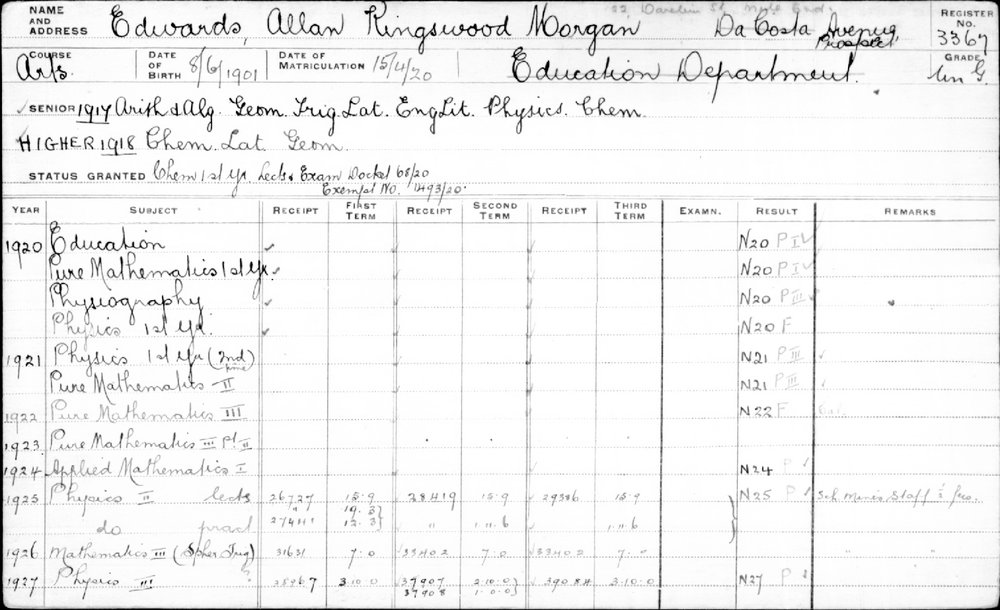 NAME AND ADDRESS Edwards, Allan Kingswood Morgan Da Costa Avenue, Prospect REGISTER NO. 3367
COURSE Arts. DATE OF BIRTH 8/6/1901 DATE OF MATRICULATION 15/4/20 Education Department. GRADE
SENIOR 1917 Arith & Alg. Geom. Trig. Lat. Eng Lit. Physics. Chem.
HIGHER 1918 Chem. Lat. Geom.
STATUS GRANTED Chem 1st Yr. Lects & Exam Docket 68/20
Exempt No. 1493/20.
YEAR SUBJECT RECEIPT FIRST TERM RECEIPT SECOND TERM RECEIPT THIRD TERM EXAMN. RESULT REMARKS
1920 Education ✓ N20 P I ✓
Pure Mathematics 1st Yr. ✓ N20 P I ✓
Physiography ✓ N20 P III ✓
Physics 1st Yr. ✓ N20 F
1921 Physics 1st Yr (2nd time) N21 P III ✓
Pure Mathematics II N21 P III ✓
1922 Pure Mathematics III N22 F
1923 Pure Mathematics III Pt II
1924 Applied Mathematics I N24 P ✓
1925 Physics II lects 26727 15.9 28419 15.9 29386 15.9 N25 P ✓ Sch Mines Staff ½ fees.
do pract 27411 19.3 12.3 " 1.11.6 1.11.6
1926 Mathematics III (Spher Trig) 31631 7.0 33402 7.0 33402 7."
1927 Physics III 25967 3.10.0 37907 2.10.0 39084 3.10.0 N27 P ✓
37908 1.0.0